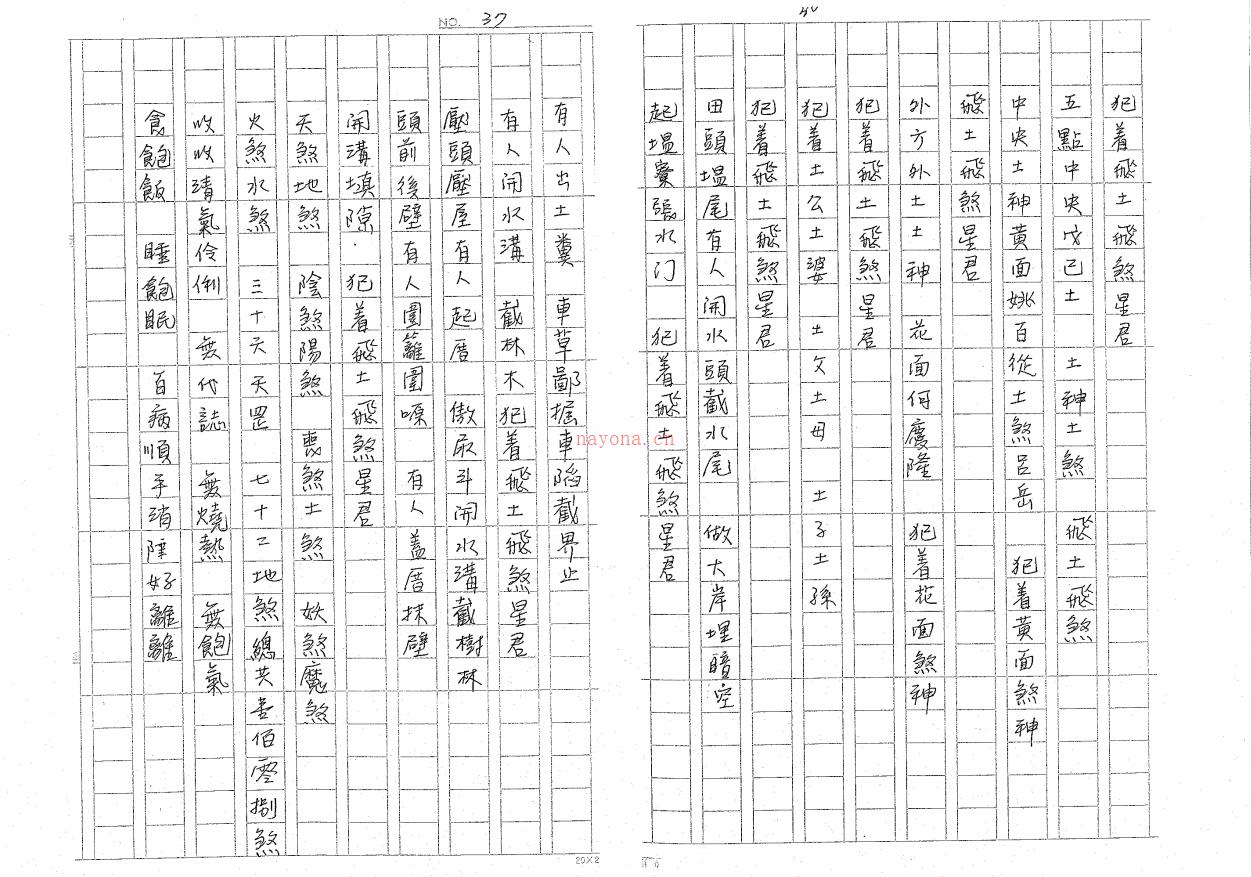 犯着飛土飛煞星君
五點中央戊己土 土神土煞 飛土飛煞
中央土神黃面姚百從土煞呂岳 犯着黃面煞神
飛土飛煞星君
外方外土土神 花面何慶隆 犯着花面煞神
犯着飛土飛煞星君
犯着土公土婆土父土母 土子土孫
犯着飛土飛煞星君
田頭塭尾有人開水頭截水尾 做大岸埋暗空
起塭寮張水门 犯着飛土飛煞星君
NO. 37
有人出土糞 車草鄙掘車陷截界止
有人開水溝 截林木犯着飛土飛煞星君
壓頭壓屋有人起厝 做尿斗開水溝截樹林
頭前後壁有人圍籬圍 有人蓋厝抹壁
開溝填隙.犯着飛土飛煞星君
天煞地煞 陰煞陽煞 喪煞土煞 妖煞魔煞
火煞水煞 三十六天罡 七十二地煞總共壹佰零捌煞
收收清氣伶俐 無代誌 無燒熱 無飽氣
食飽飯 睡飽眠 百病順手消 陸好離離
20X2
nayona.cn